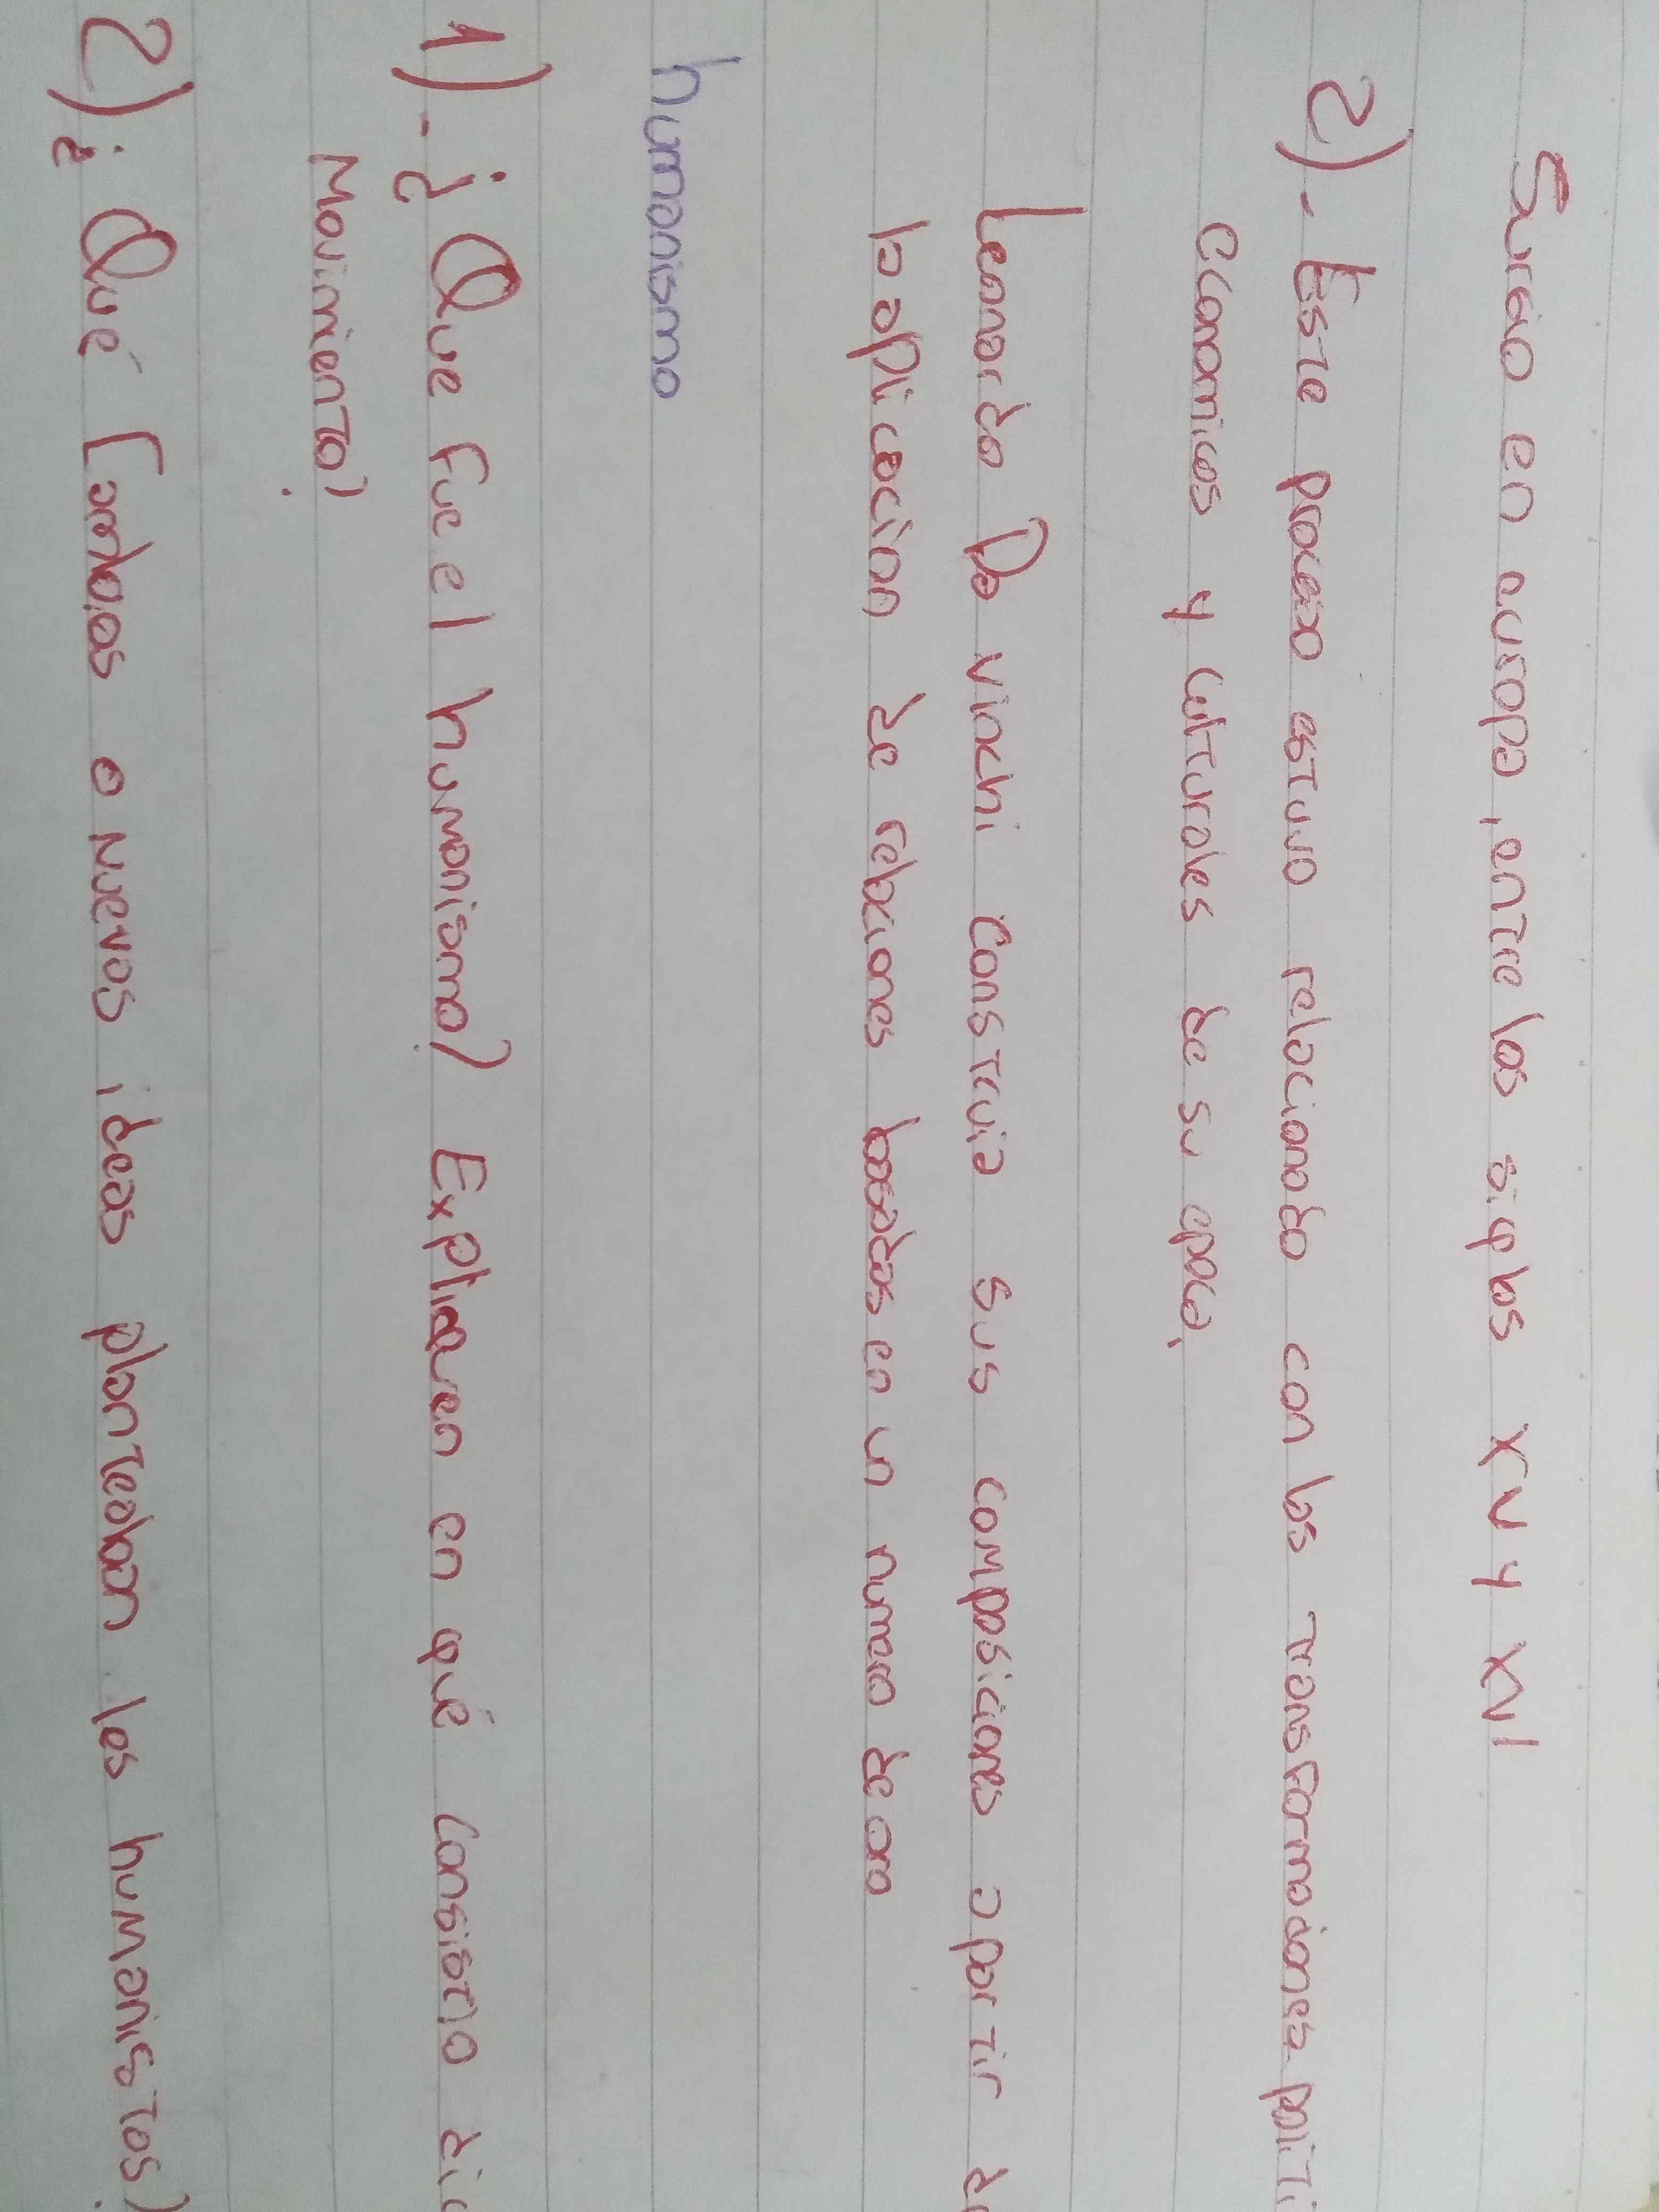 Surgio en europa, entre los siglos XV y XVI
2)- Este proceso estuvo relacionado con las transformaciones politi
economicas y culturales de su epoca.
Leonardo Da vinchi construia sus composiciones a partir de
la aplicacion de relaciones basadas en un numero de oro
humanismo
1)- ¿Que fue el humanismo? Expliquen en qué consistio di
Movimiento?
2)¿Qué Cambios o nuevos ideas planteaban los humanistas?